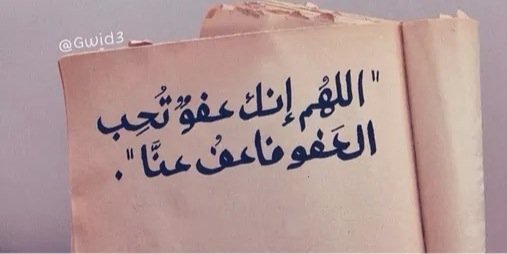 @Gwid3
"اللهُم إنك عفوٌ تُحِب
العَفو فاعفُ عنَّا".